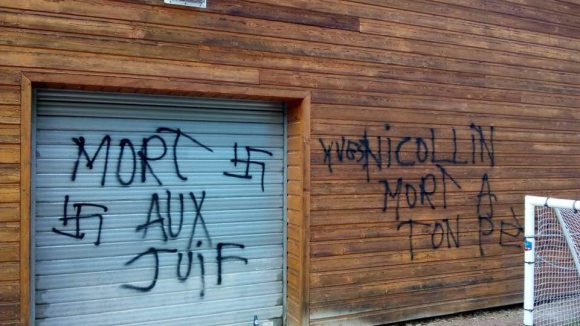 MORT
AUX
JUIF
YVES NICOLLIN
MORT A
TON PÈ